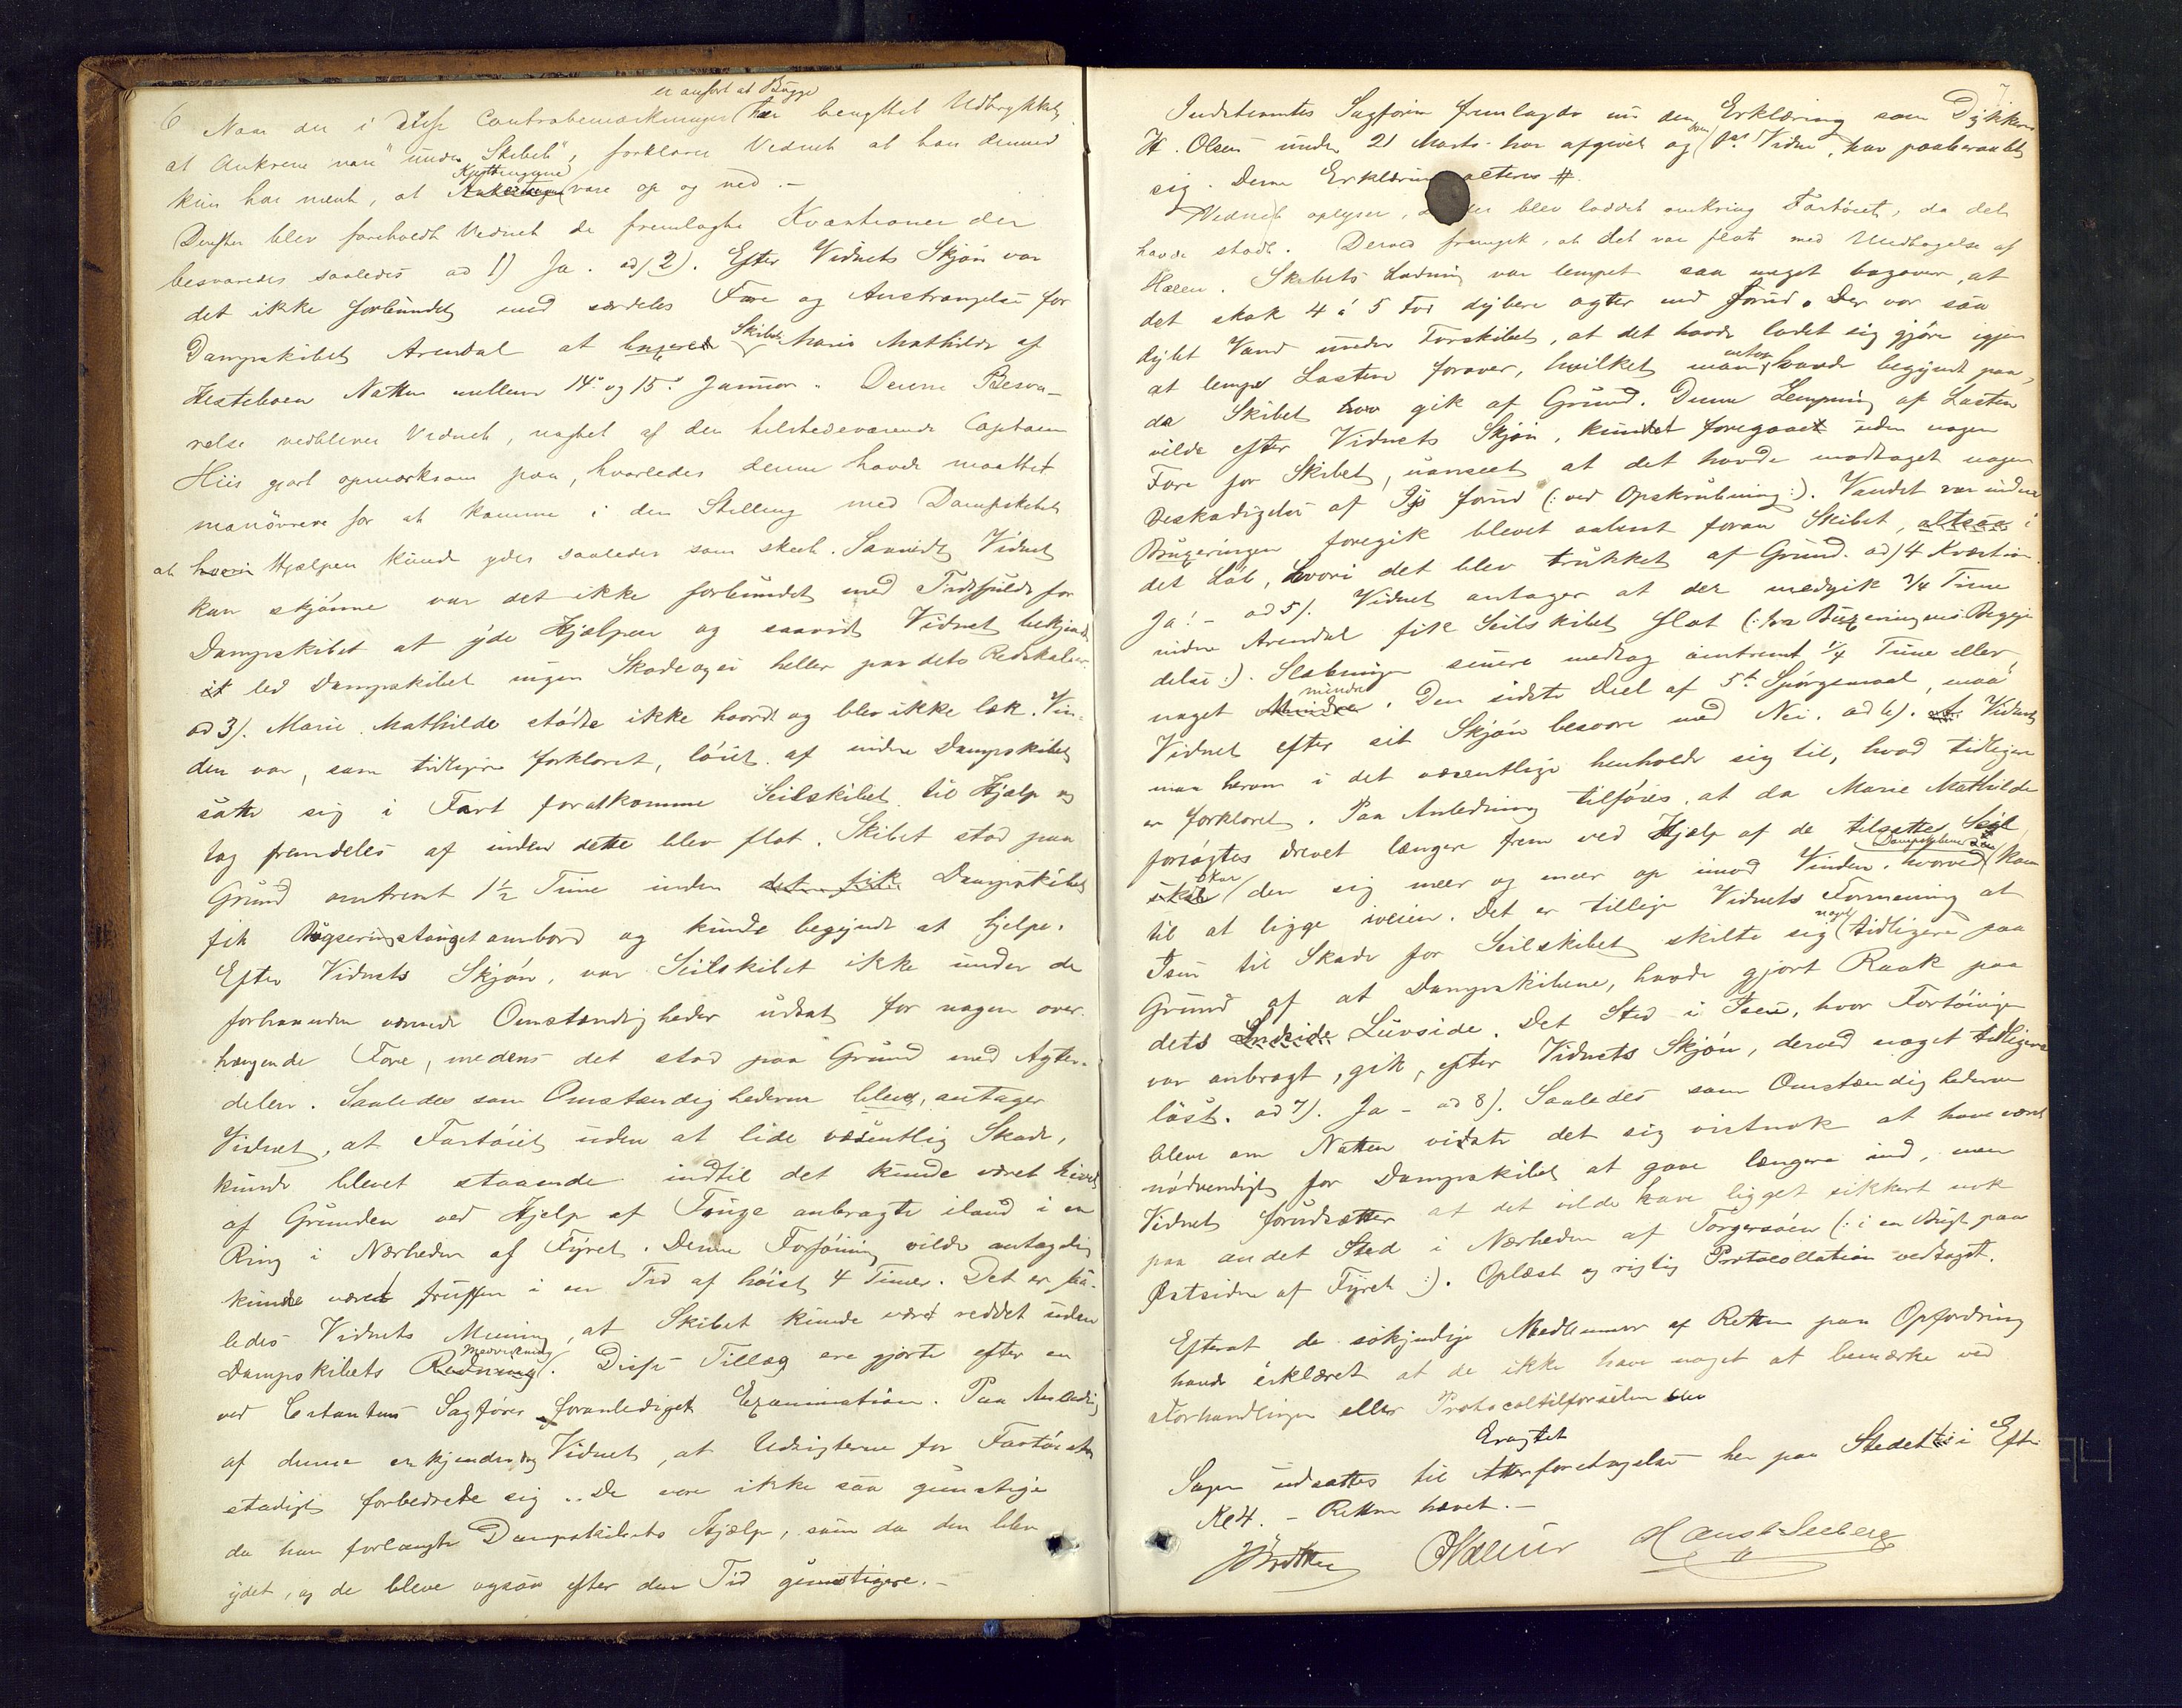 6
er anført at Bugge
Naar der i disse Contrabemærkninger har benyttet Udtrykket
at Ankrene vare "under Skibet", forklarer Vidnet at han dermed
kun har ment, at Kjættingerne vare op og ned.-
Derefter blev foreholdt Vidnet de fremlagte Kvæstioner der
besvaredes saaledes ad 1) Ja. ad 2). Efter Vidnets Skjøn var
det ikke forbundet med særdeles Fare og Anstrængelse for
Dampskibet Arendal at bugsere Skibet Marie Mathilde af
Hesteboen Natten mellem 14de og 15de Januar. Denne Besva-
relse vedbliver Vidnet, uagtet af den tilstedeværende Captain
Hiis gjort opmærksom paa, hvorledes denne havde maattet
manøvrere for at komme i den Stilling med Dampskibet
at Hjælpen kunde ydes saaledes som skeet. Saavidt Vidnet
kan skjønne var det ikke forbundet med Tidsspilde for
Dampskibet at yde Hjælpen og saavidt Vidnet bekjendt
led Dampskibet ingen Skade og ei heller paa dets Redskaber.
ad 3). Marie Mathilde stødte ikke haardt og blev ikke læk. Vin-
den var, som tidligere forklaret, løiet af inden Dampskibet
satte sig i Fart for at komme Seilskibet til Hjælp og
tog fremdeles af inden dette blev flot. Skibet stod paa
Grund omtrent 1½ Time inden det fik Dampskibet
fik Bugseringstouget ombord og kunde begynde at hjelpe.
Efter Vidnets Skjøn, var Seilskibet ikke under de
forhaanden værende Omstændigheder udsat for nogen over-
hængende Fare, medens det stod paa Grund med Agter-
delen. Saaledes som Omstændighederne bleve, antager
Vidnet, at Fartøiet uden at lide væsentlig Skade,
kunde blevet staaende indtil det kunde været hivet
af Grunden ved Hjelp af Touge anbragte iland i en
Ring i Nærheden af Fyret. Denne Forføining vilde antagelig
kunde været truffen i en Tid af høist 4 Timer. Det er saa-
ledes Vidnets Mening, at Skibet kunde være reddet uden
Dampskibets Medvirkning. Disse Tillæg ere gjorte efter en
ved Citantens Sagfører foranlediget Examination. Paa Anledning
af denne erkjender og Vidnet, at Udsigterne for Fartøiet
stadigt forbedrede sig. De vare ikke saa gunstige
da han forlangte Dampskibets Hjælp, som da den blev
ydet, og de bleve ogsaa efter den Tid gunstigere.-
7
Indstevntes Sagfører fremlagde nu den Erklæring som Dykker
H. Olsen under 21 Marts har afgivet og som Vidne, har paaberaabt
sig. Denne Erklæring acteres #.
Vidnet oplyser, der blev loddet omkring Fartøiet, da det
havde stødt. Derved fremgik, at det var flot med Undtagelse af
Hælen. Skibets Ladning var lempet saa meget bagover, at
det stak 4 á 5 Fod dybere agter end forud. Der var saa
dybt Vand under Forskibet, at det havde ladet sig gjøre igjen
at lempe Lasten forover, hvilket man havde begyndt paa,
da Skibet gik af Grund. Denne Lempning af Lasten
vilde efter Vidnets Skjøn, kundet foregaaet uden nogen
Fare for Skibet, uanseet at det havde modtaget nogen
Beskadigelse af Is forud (: ved Opskrubning :). Vandet var inden
Bugseringen foregik blevet aabent foran Skibet, altsaa i
det Løb, hvori det blev trukket af Grund. ad 4 Kvæstion
Ja! - ad 5). Vidnet antager at der medgik ¾ Time
inden Arendal fik Seilskibet flot (: fra Bugseringens Begyn-
delse :). Slæbningen senere medtog omtrent ¼ Time eller
noget mindre. Den sidste Deel af 5te Spørgsmaal, maa
Vidnet efter sit Skjøn besvare med Nei. ad 6). Vidnet
maa herom i det væsentlige henholde sig til, hvad tidligere
er forklaret. Paa Anledning tilføres, at da Marie Mathilde
forsøgtes drevet længere frem ved Hjelp af de tilsatte Seil,
skar den sig meer og meer op imod Vinden, hvorved Dampskibene kom
til at ligge iveien. Det er tillige Vidnets Formening at
Isen til Skade for Seilskibet skilte sig noget tidligere paa
Grund af at Dampskibene, havde gjort Raak paa
dets Luvside. Det Sted i Isen, hvor Fortøiningen
var anbragt, gik, efter Vidnets Skjøn, derved noget tidligere
løst. ad 7). Ja - ad 8). Saaledes som Omstændighederne
bleve om Natten viste det sig vistnok at have været
nødvendigt for Dampskibet at gaae længere ind, men
Vidnet forudsætter at det vilde have ligget sikkert nok
paa andet Sted i Nærheden af Torgersøen (: i en Bugt paa
Østsiden af Fyret :). Oplæst og rigtig Protocollation vedtaget.
Efterat de søkyndige Medlemmer af Retten paa Opfordring
havde erklæret at de ikke have noget at bemærke ved
Forhandlingen eller Protocoltilførselen blev
Eragtet
Sagen udsættes til Atterforetagelse her paa Stedet i Efterm.
Kl 4. - Retten hævet.-